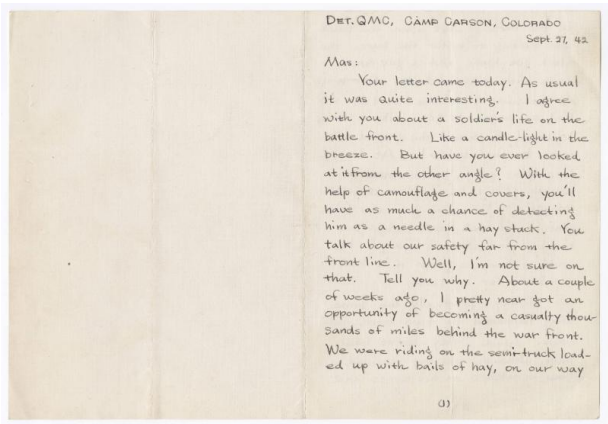 DET. QMC, CAMP CARSON, COLORADO
Sept. 27, 42
Mas:
Your letter came today. As usual
it was quite interesting. I agree
with you about a soldier's life on the
battle front. Like a candle-light in the
breeze. But have you ever looked
at it from the other angle? With the
help of camouflage and covers, you'll
have as much a chance of detecting
him as a needle in a hay stack. You
talk about our safety far from the
front line. Well, I'm not sure on
that. Tell you why. About a couple
of weeks ago, I pretty near got an
opportunity of becoming a casualty thou-
sands of miles behind the war front.
We were riding on the semi-truck load-
ed up with bails of hay, on our way
(1)